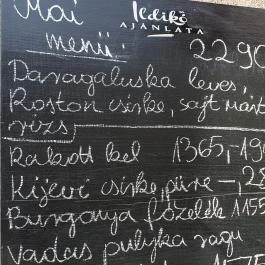 Mai
Ildikó
AJÁNLATA
menü: 2290
Daragaluska leves,
Roston csirke, sajt márt
rizs
Rakott kel 1365,-19
Kijevi csirke, püre -, 28
Burgonya főzelék 1155
Vadas pulyka ragu